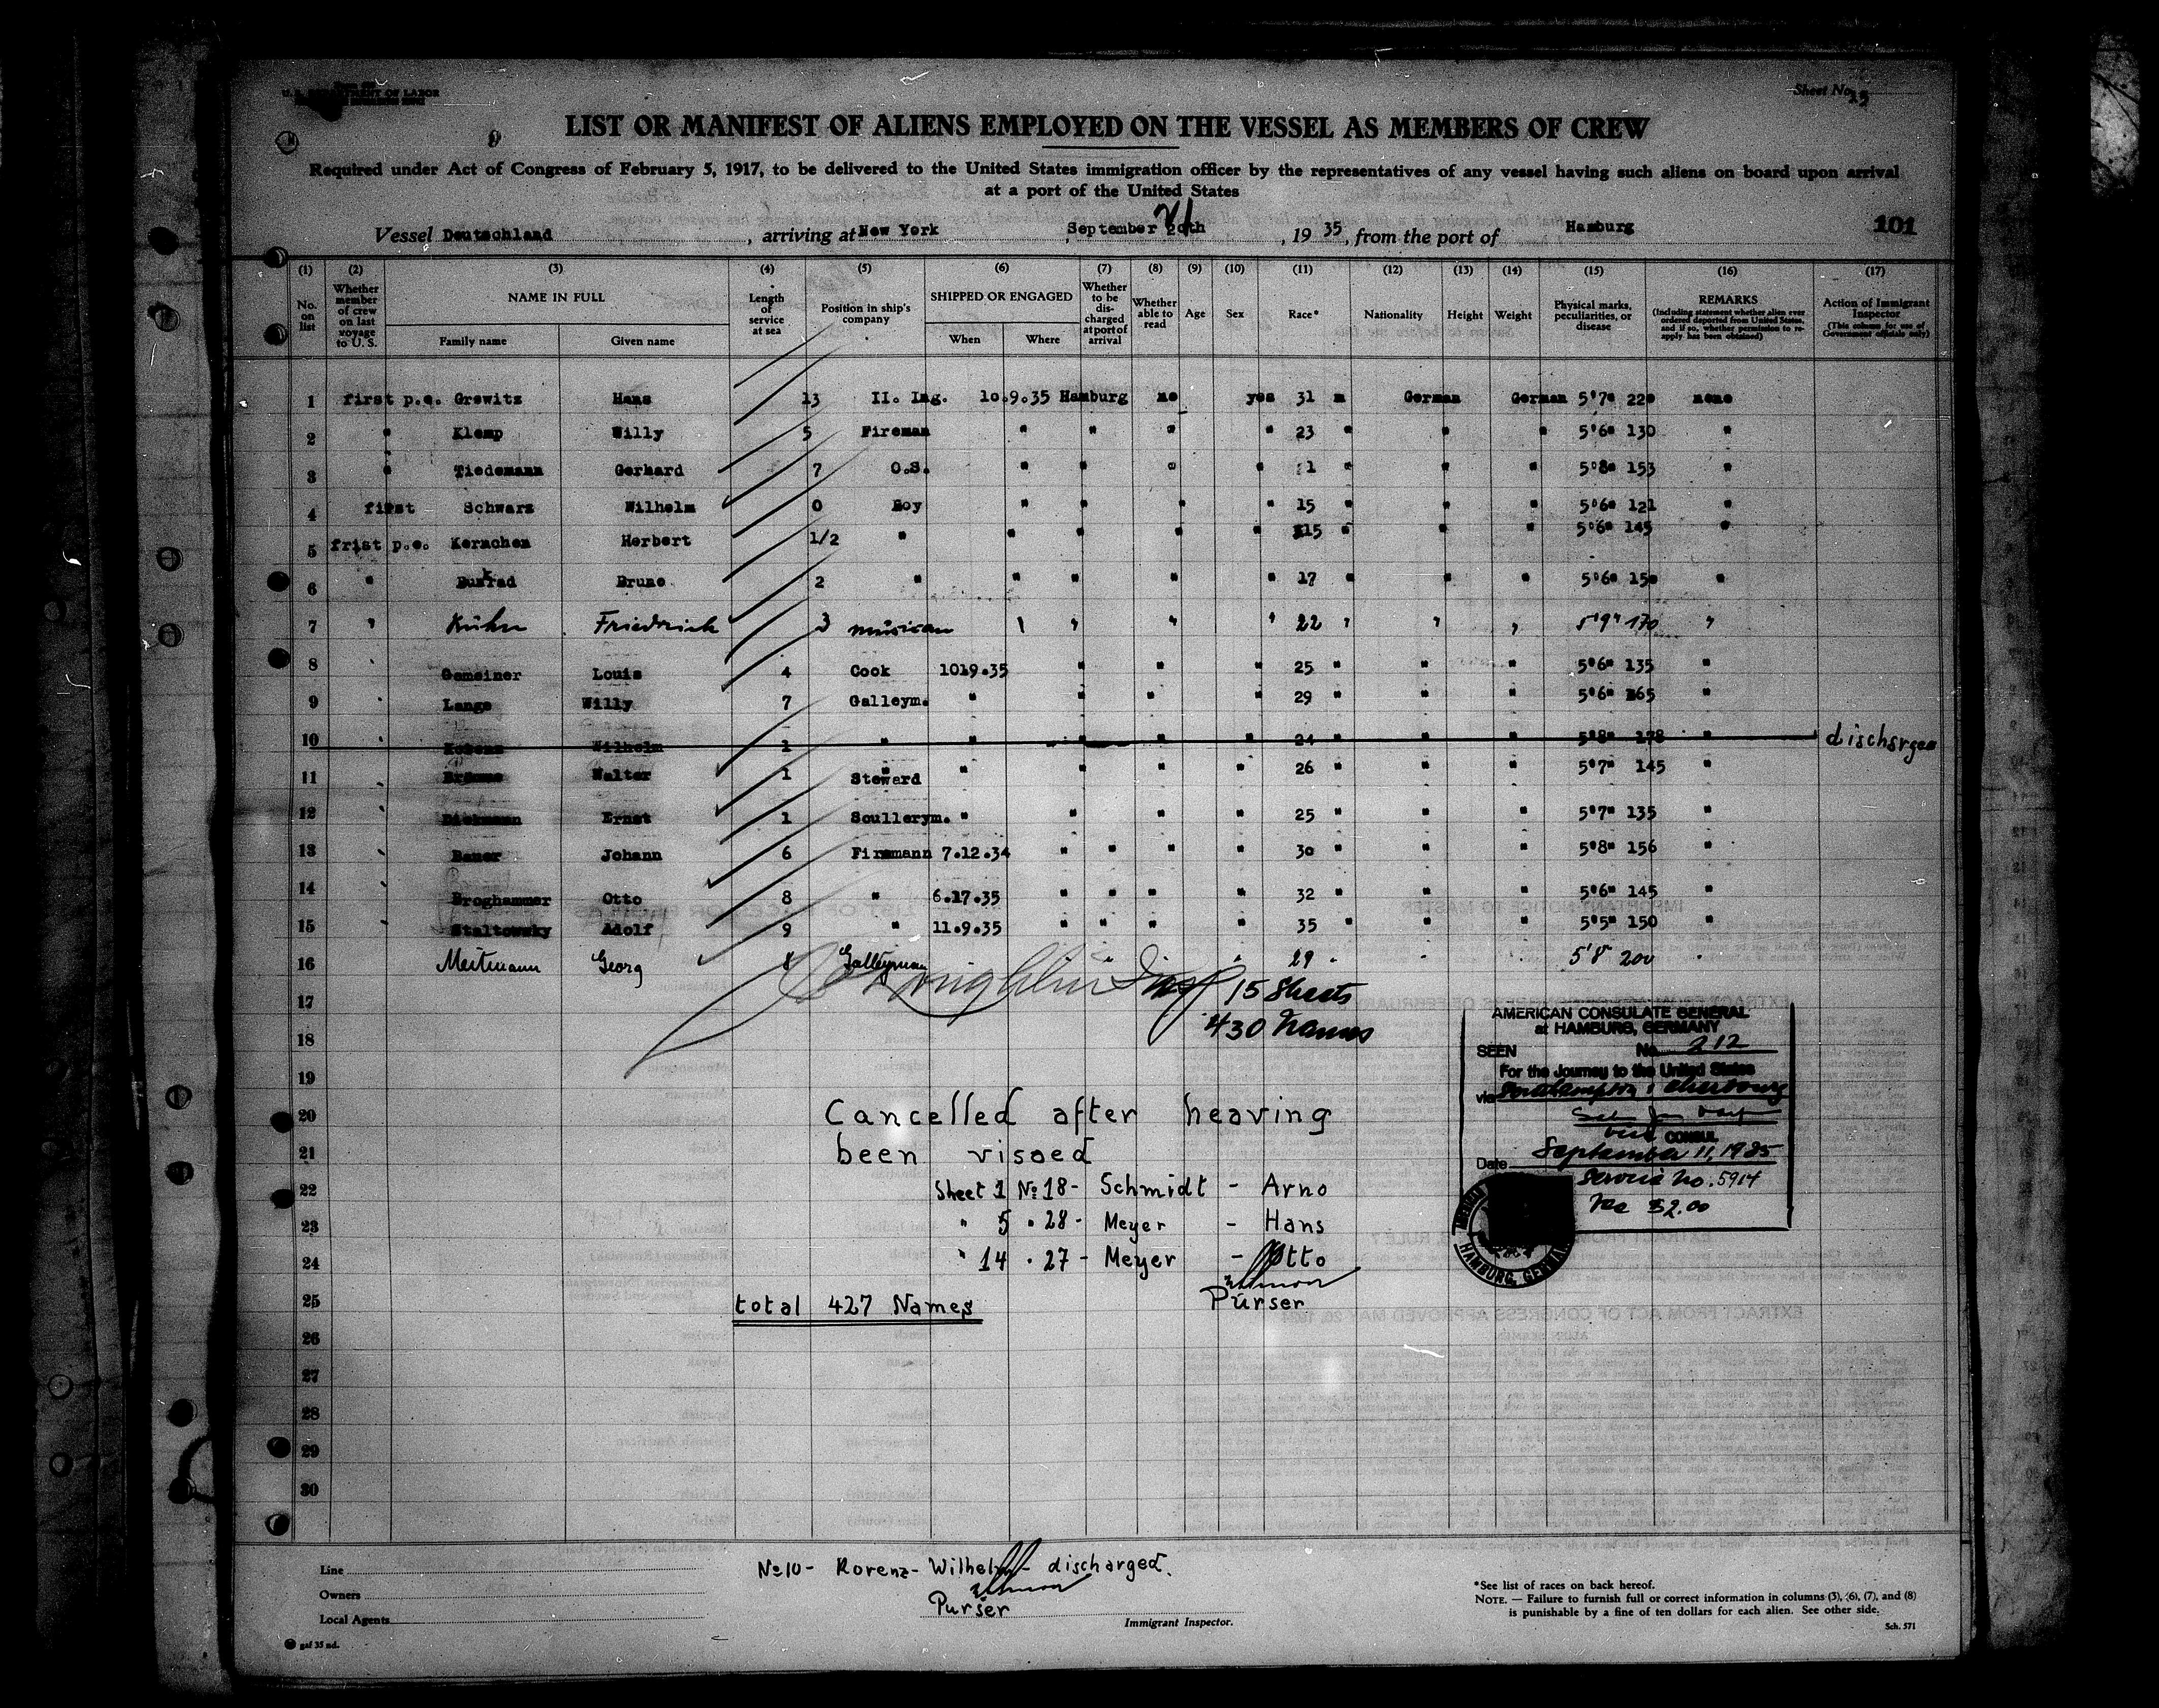 U. S. DEPARTMENT OF LABOR
Sheet No.
LIST OR MANIFEST OF ALIENS EMPLOYED ON THE VESSEL AS MEMBERS OF CREW
Required under Act of Congress of February 5, 1917, to be delivered to the United States immigration officer by the representatives of any vessel having such aliens on board upon arrival
at a port of the United States
Vessel Deutschland, arriving at New York September 20th, 1935, from the port of Hamburg 101
(1) (2) (3) (4) (5) (6) (7) (8) (9) (10) (11) (12) (13) (14) (15) (16) (17)
No. on list
Whether member of crew on last voyage to U. S.
NAME IN FULL
Family name Given name
Length of service at sea
Position in ship's company
SHIPPED OR ENGAGED
When Where
Whether to be discharged at port of arrival
Whether able to read
Age
Sex
Race*
Nationality
Height
Weight
Physical marks, peculiarities, or disease
REMARKS
(Including statement whether alien ever ordered deported from United States, and if so, whether permission to re-apply has been obtained)
Action of Immigrant Inspector
(This column for use of Government officials only)
1 first p.e. Grewitz Hans 13 II. Ing. 10.9.35 Hamburg no yes 31 m German German 5'7" 220 none
2 " Klemp Willy 5 Fireman " " " " 23 " " " 5'6" 130 "
3 " Tiedemann Gerhard 7 O.S. " " " " " " " 5'8" 153 "
4 first Schwarz Wilhelm 0 Boy " " " " 15 " " " 5'6" 121 "
5 frist p.e. Kernchen Herbert 1/2 " " " " " 15 " " " 5'6" 145 "
6 " Bruno 2 " " " " " 17 " " " 5'6" 150 "
7 " Kühn Friedrich 3 musican " " " " 22 " " " 5'9" 170 "
8 " Gemeiner Louis 4 Cook 1019.35 " " " 25 " " " 5'6" 135 "
9 " Lange Willy 7 Galleym. " " " " 29 " " " 5'6" 165 "
10 " Wilhelm 1 " " " " " 24 " " " 5'8" 178 " discharged
11 " Walter 1 Steward " " " " 26 " " " 5'7" 145 "
12 " Ernst 1 Scullerym. " " " " 25 " " " 5'7" 135 "
13 " Bauer Johann 6 Firemann 7.12.34 " " " " 30 " " " 5'8" 156 "
14 " Broghammer Otto 8 " 6.17.35 " " " " 32 " " " 5'6" 145 "
15 " Staltowsky Adolf 9 " 11.9.35 " " " " 35 " " " 5'5" 150 "
16 Meitmann Georg 8 Galleyman " " 29 " " " 5'8" 200 "
17 15 Sheets
18 430 Names
19
20 Cancelled after heaving
21 been visoed
22 Sheet 1 No 18 - Schmidt - Arno
23 " 5 " 28 - Meyer - Hans
24 " 14 " 27 - Meyer - Otto
Purser
25 total 427 Names
26
27
28
29
30
AMERICAN CONSULATE GENERAL
at HAMBURG, GERMANY
SEEN No. 212
For the Journey to the United States
via Southampton & Cherbourg
Vice CONSUL
Date September 11, 1935
Service No. 5914
Fee $2.00
HAMBURG, GERMANY
Line
Owners
Local Agents
No 10 - Korenz - Wilhelm - discharged.
Purser
Immigrant Inspector.
*See list of races on back hereof.
NOTE. — Failure to furnish full or correct information in columns (3), (6), (7), and (8)
is punishable by a fine of ten dollars for each alien. See other side.
Sch. 571
gaf 35 nd.